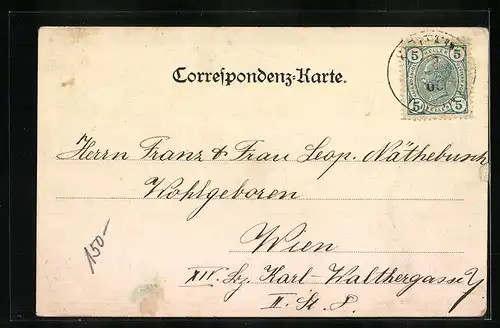 Correspondenz-Karte.
5 5
5 5
Herrn Franz & Frau Leop. Näthebusch
Wohlgeboren
Wien
XIV. Bz. Karl-Walthergasse 7
II. St. 8.
150-